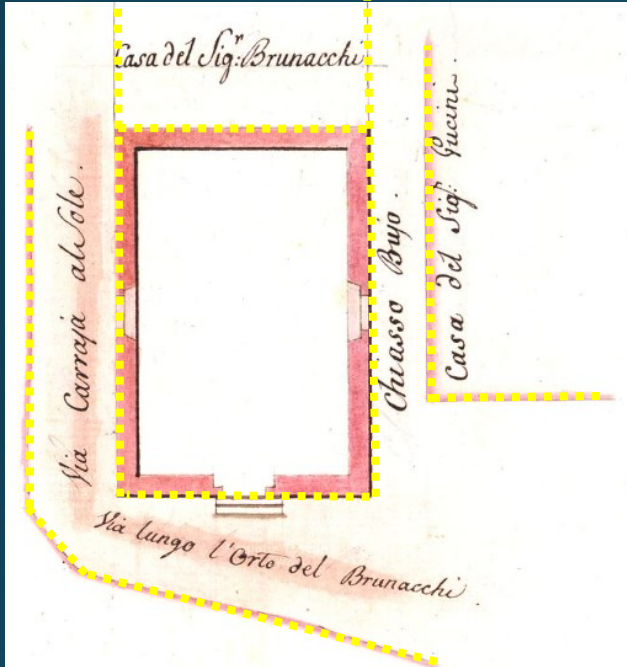 Casa del Sigr: Brunacchi
Via Carraja al Sole.
Chiasso Bujo.
Casa del Sigr: Pucini.
Via lungo l'Orto del Brunacchi